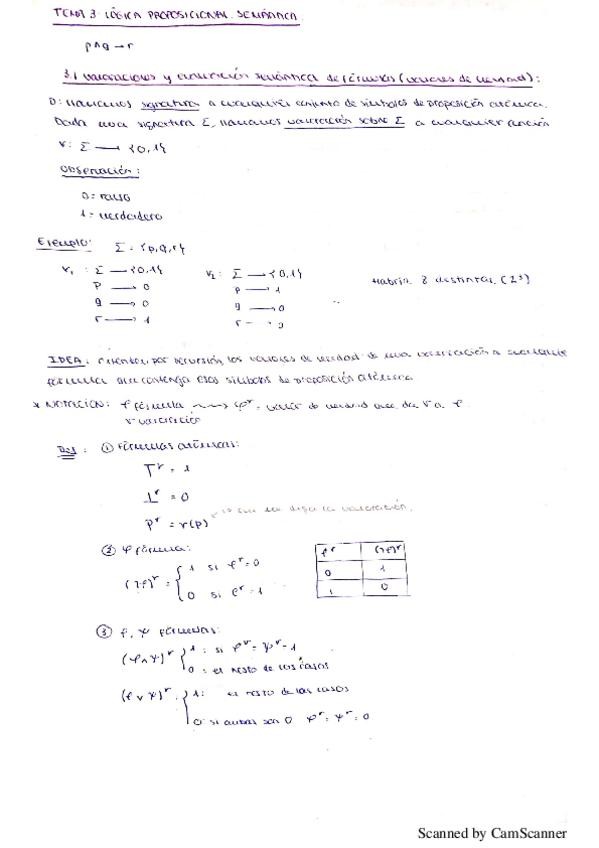 TEMA 3. LÓGICA PROPOSICIONAL. SEMÁNTICA
p∧q → r
3.1 valoraciones y evaluación semántica de fórmulas (valores de verdad):
D: llamamos signatura a cualquier conjunto de símbolos de proposición atómica.
Dada una signatura Σ, llamamos valoración sobre Σ a cualquier función
v: Σ → {0,1}
Observación:
0 = falso
1 = verdadero
Ejemplo: Σ = {p,q,r}
v₁ : Σ → {0,1} v₂ : Σ → {0,1} Habría 8 distintas (2³)
p → 0 p → 1
q → 0 q → 0
r → 1 r → 0
IDEA: extender por recursión los valores de verdad de una valoración a cualquier
fórmula que contenga esos símbolos de proposición atómica
* NOTACIÓN: φ fórmula ⇝ φᵛ = valor de verdad que da v a φ.
v valoración
Def: ① Fórmulas atómicas:
⊤ᵛ = 1
⊥ᵛ = 0
pᵛ = v(p) lo que diga la valoración.
② φ fórmula: φᵛ (¬φ)ᵛ
(¬φ)ᵛ = { 1 si φᵛ = 0 0 1
0 si φᵛ = 1 1 0
③ φ, ψ fórmulas:
(φ∧ψ)ᵛ { 1 : si φᵛ = ψᵛ = 1
0 : el resto de los casos
(φ∨ψ)ᵛ { 1 : el resto de los casos
0 : si ambas son 0 φᵛ = ψᵛ = 0
Scanned by CamScanner